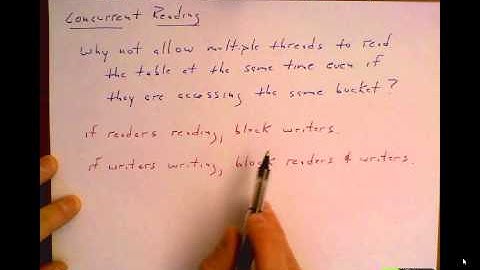 Concurrent Reading
Why not allow multiple threads to read
the table at the same time even if
they are accessing the same bucket?
if readers reading, block writers.
if writers writing, block readers & writers.